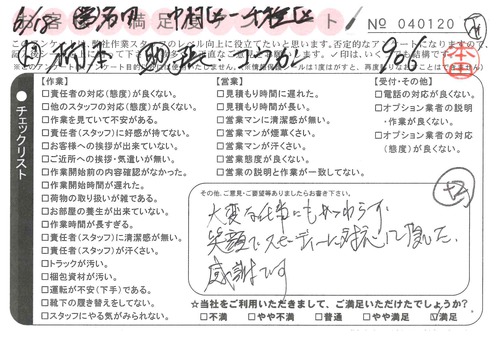 お客様満足度アンケート No 040120
9o6
チェックリスト
【作業】
□責任者の対応(態度)が良くない。
□他のスタッフの対応(態度)が良くない。
□作業を見ていて不安がある。
□責任者(スタッフ)に好感が持てない。
□お客様への挨拶が出来ていない。
□ご近所への挨拶・気遣いが無い。
□作業開始前の内容確認がなかった。
□作業開始時間が遅れた。
□荷物の取り扱いが雑である。
□お部屋の養生が出来ていない。
□作業時間が長すぎる。
□責任者(スタッフ)に清潔感が無い。
□責任者(スタッフ)が汗くさい。
□トラックが汚い。
□梱包資材が汚い。
□運転が不安(下手)である。
□靴下の履き替えをしてない。
□スタッフにやる気がみられない。
【営業】
□見積もり時間に遅れた。
□見積もり時間が長い。
□営業マンに清潔感が無い。
□営業マンが煙草くさい。
□営業マンが汗くさい。
□営業態度が良くない。
□営業の説明と作業が一致してない。
【受付・その他】
□電話の対応が良くない。
□オプション業者の説明
・作業が良くない。
□オプション業者の対応
(態度)が良くない。
その他、ご意見・ご要望等ありましたらお書き下さい。
大変な仕事にもかかわらず
笑顔でスピーディーに対応して頂いた
感謝です
☆当社をご利用いただきまして、ご満足いただけたでしょうか?
□不満 □やや不満 □普通 □やや満足 ☑満足